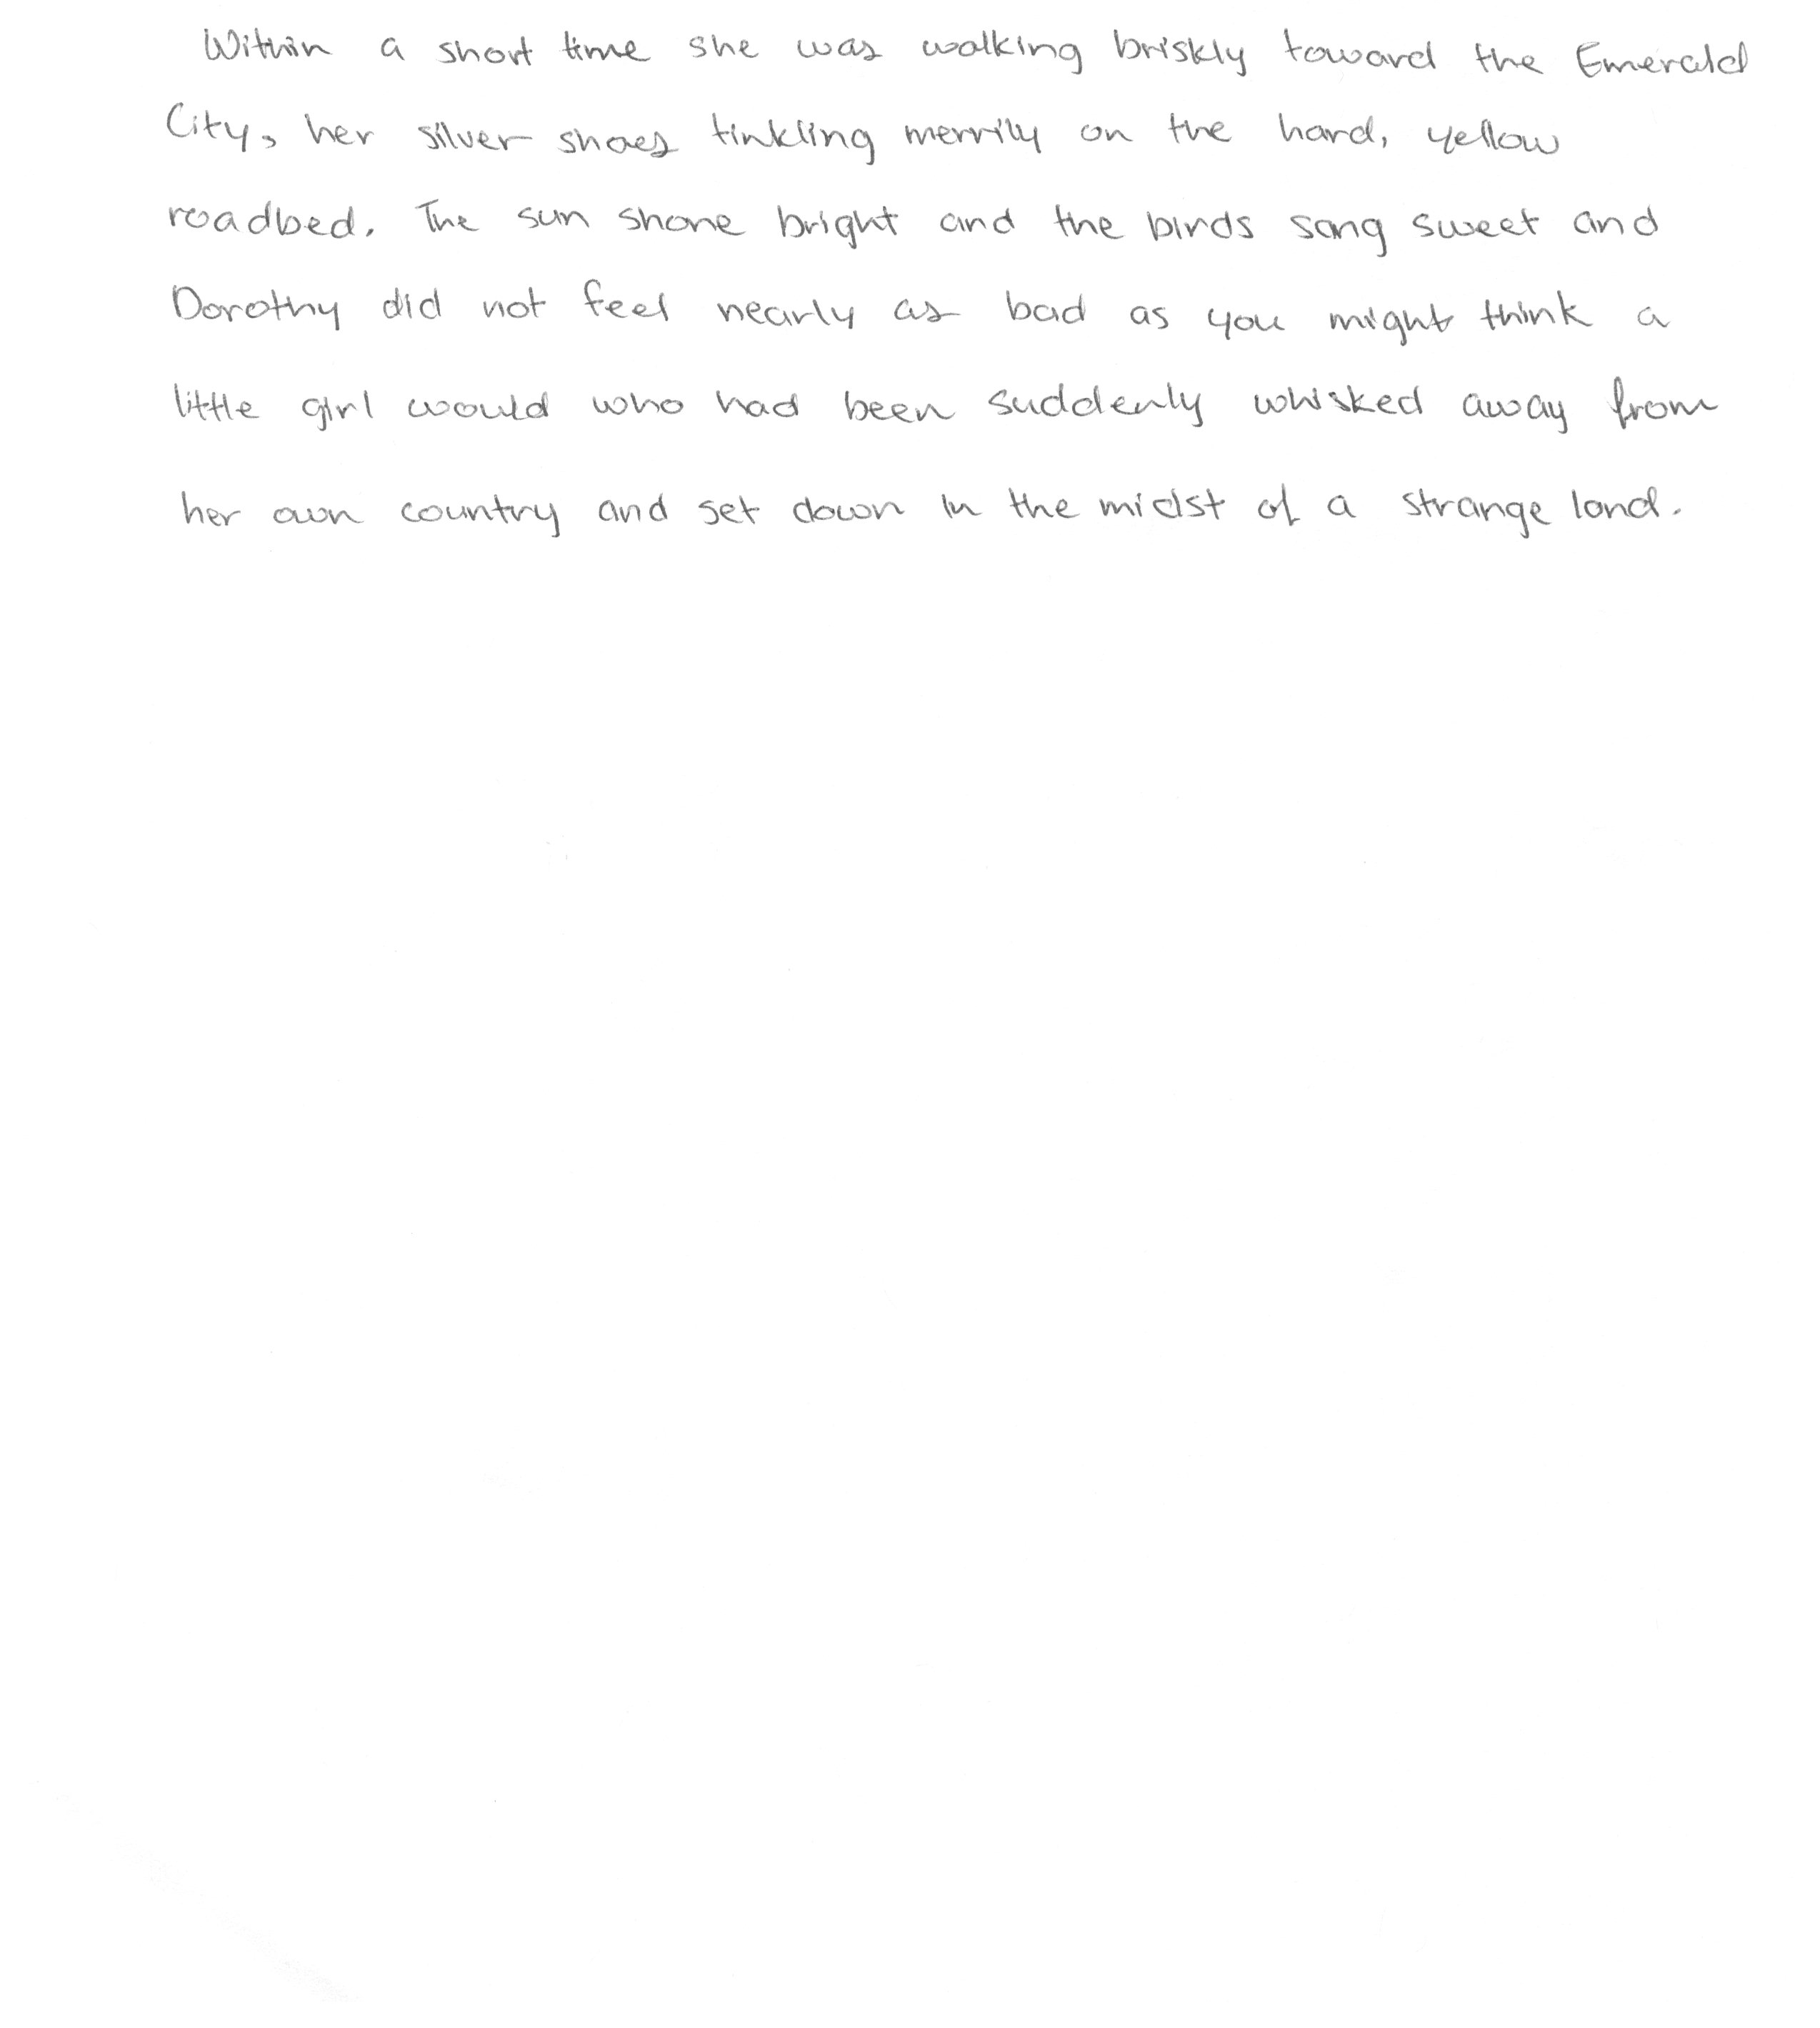 Within a short time she was walking briskly toward the Emerald
City, her silver shoes tinkling merrily on the hard, yellow
roadbed. The sun shone bright and the birds sang sweet and
Dorothy did not feel nearly as bad as you might think a
little girl would who had been suddenly whisked away from
her own country and set down in the midst of a strange land.